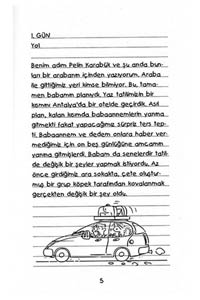 1. GÜN
Yol
Benim adım Pelin Karabük ve şu anda bun-
ları bir arabanın içinden yazıyorum. Araba
ile gittiğimiz yeri kimse bilmiyor. Bu, tama-
men babamın planıydı. Yaz tatilimizin bir
kısmı Antalya'da bir otelde geçirdik. Asıl
plan, kalan kısımda babaannemlerin yanına
gitmekti fakat yapacağımız sürpriz ters tep-
ti. Babaannem ve dedem onlara haber ver-
mediğimiz için on beş günlüğüne amcamın
yanına gitmişlerdi. Babam da senelerdir tatil-
de değişik bir şeyler yapmak istiyordu. Az
önce girdiğimiz ara sokakta, çete oluştur-
muş bir grup köpek tarafından kovalanmak
gerçekten değişik bir şey oldu.
5